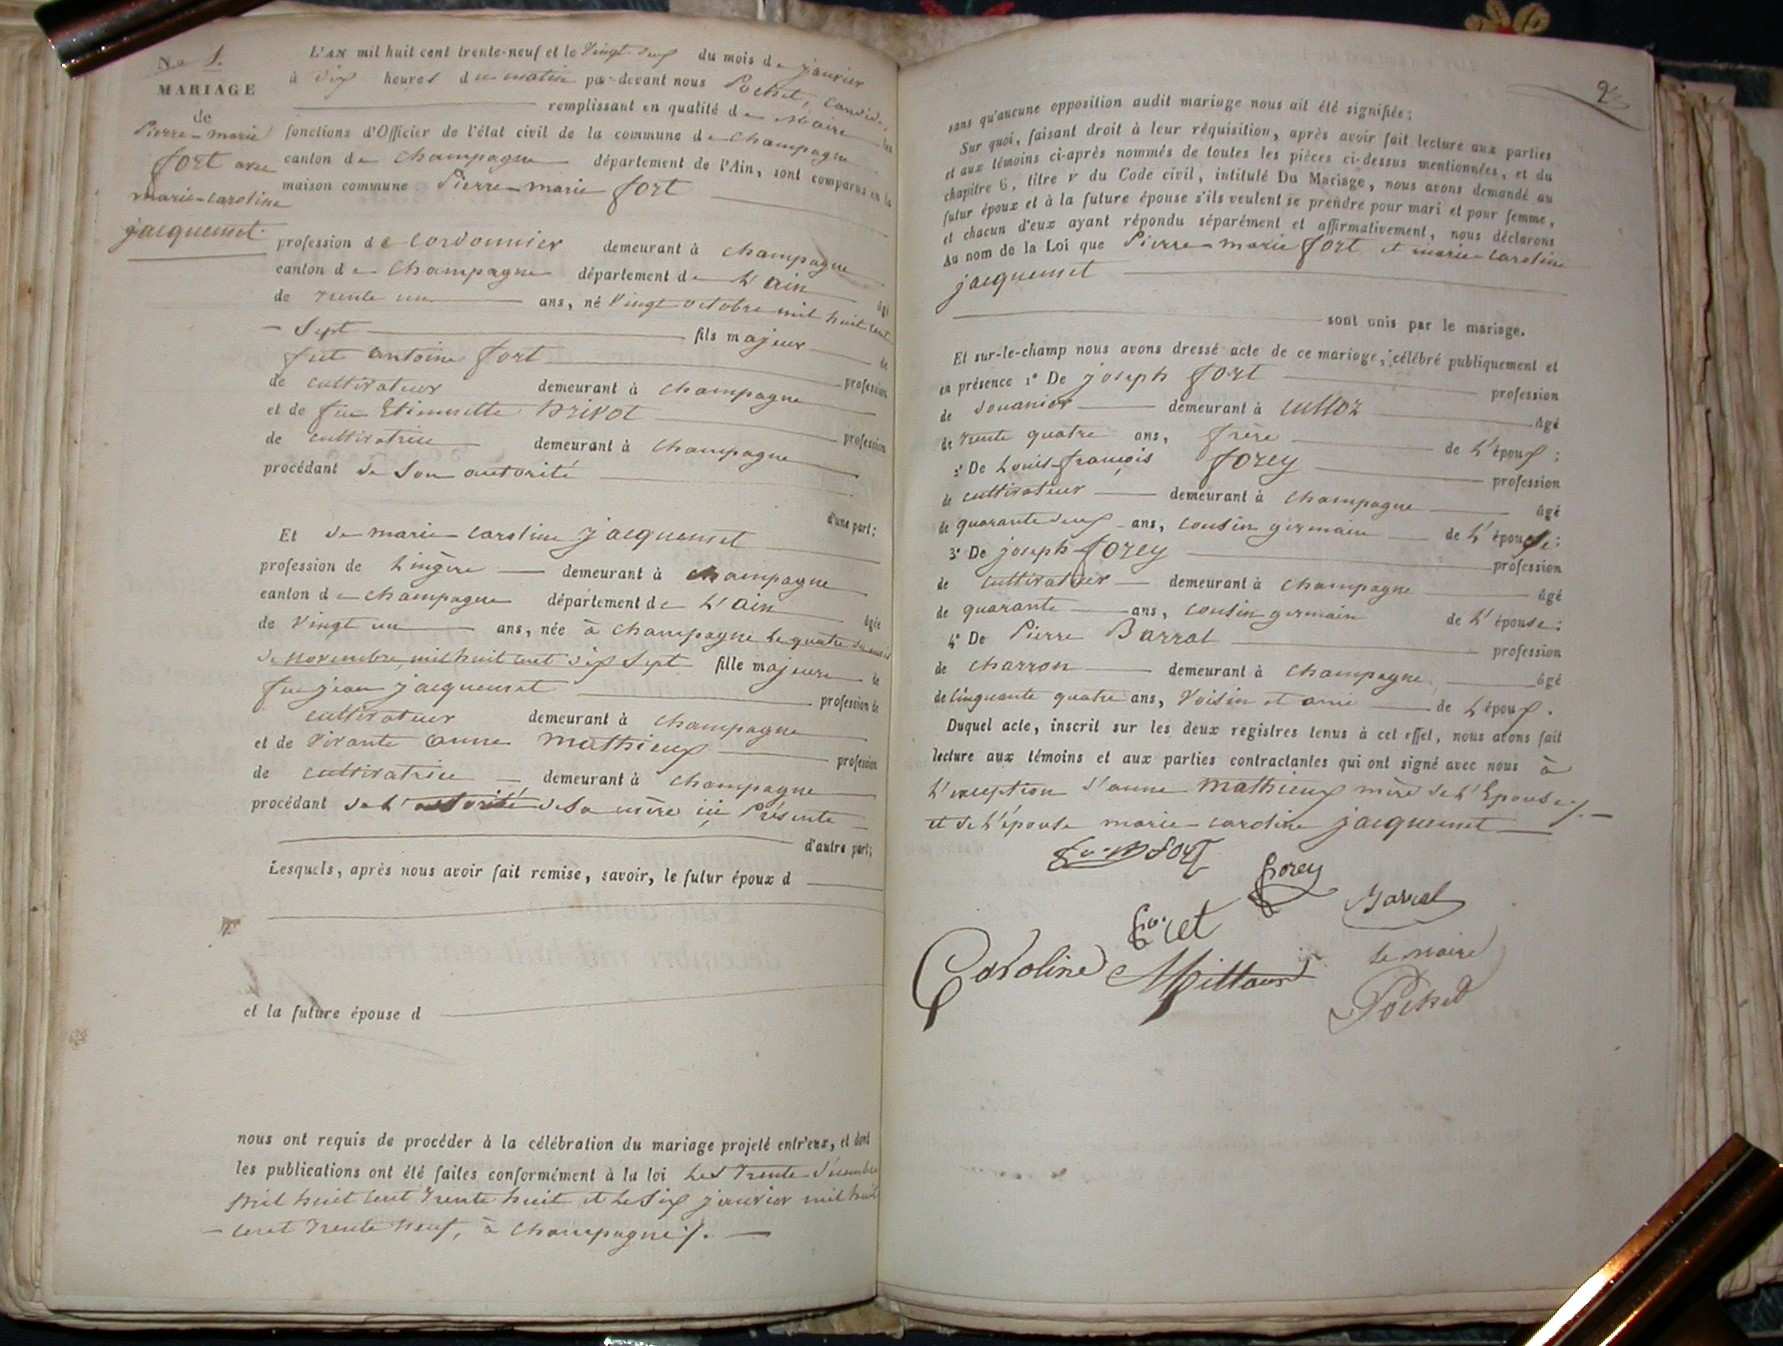 No 1.
MARIAGE
de
Pierre-marie
fort avec
marie-caroline
jacquemet.
L'AN mil huit cent trente-neuf et le vingt deux du mois de janvier
à dix heures du matin par-devant nous Pochet, Candide,
remplissant en qualité de Maire les
fonctions d'Officier de l'état civil de la commune de Champagne
canton de Champagne département de l'Ain, sont comparus en la
maison commune Pierre-marie fort
profession de cordonnier demeurant à Champagne
canton de Champagne département de L'ain âgé
de trente un ans, né vingt octobre mil huit cent
Sept fils majeur de
feu antoine fort profession
de cultivateur demeurant à Champagne
et de fue Etiennette Brivot profession
de cultivatrice demeurant à Champagne
procédant de Son autorité
d'une part;
Et de marie-caroline jacquemet
profession de Lingère demeurant à champagne
canton de champagne département de L'ain âgée
de vingt un ans, née à champagne le quatre du mois
de novembre mil huit cent dix Sept fille majeure de
feu jean jacquemet profession de
cultivateur demeurant à champagne
et de vivante anne Mathieux profession
de cultivatrice demeurant à champagne
procédant de L'autorité de Sa mère ici Présente
d'autre part;
Lesquels, après nous avoir fait remise, savoir, le futur époux d
et la future épouse d
nous ont requis de procéder à la célébration du mariage projeté entr'eux, et dont
les publications ont été faites conformément à la loi Les trente décembre
mil huit cent trente huit et le Six janvier mil huit
cent trente neuf, à Champagne /.
2
sans qu'aucune opposition audit mariage nous ait été signifiée;
Sur quoi, faisant droit à leur réquisition, après avoir fait lecture aux parties
et aux témoins ci-après nommés de toutes les pièces ci-dessus mentionnées, et du
chapitre 6, titre v du Code civil, intitulé Du Mariage, nous avons demandé au
futur époux et à la future épouse s'ils veulent se prendre pour mari et pour femme,
et chacun d'eux ayant répondu séparément et affirmativement, nous déclarons
Au nom de la Loi que Pierre-marie fort et marie-caroline
jacquemet
sont unis par le mariage.
Et sur-le-champ nous avons dressé acte de ce mariage, célébré publiquement et
en présence 1° De joseph fort profession
de douanier demeurant à culloz âgé
de trente quatre ans, frère de L'époux;
2° De Louis-françois forey profession
de cultivateur demeurant à champagne âgé
de quarante deux ans, cousin germain de L'épouse;
3° De joseph forey profession
de cultivateur demeurant à champagne âgé
de quarante ans, cousin germain de L'épouse;
4° De Pierre Barral profession
de charron demeurant à champagne âgé
de Cinquante quatre ans, Voisin et ami de L'époux.
Duquel acte, inscrit sur les deux registres tenus à cet effet, nous avons fait
lecture aux témoins et aux parties contractantes qui ont signé avec nous à
L'exception d'anne Mathieux mère de L'Epouse /.
et de L'épouse marie-caroline jacquemet
fort
forey
Barral
Caroline Mittaud
le maire
Pochet